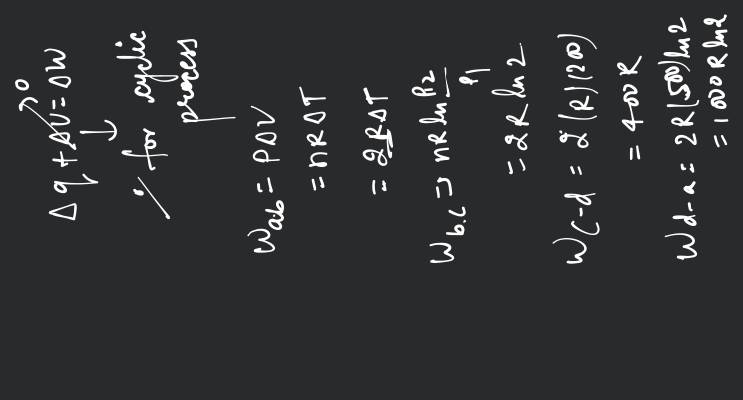 Δq + ΔU = ΔW
→ 0
↓
for cyclic
process
Wab = PΔV
= nRΔT
= 2RΔT
Wb.c => nR ln P2/P1
= 2R ln 2
Wc-d = 2(R)(200)
= 400R
Wd-a = 2R(500) ln 2
= 1000R ln 2